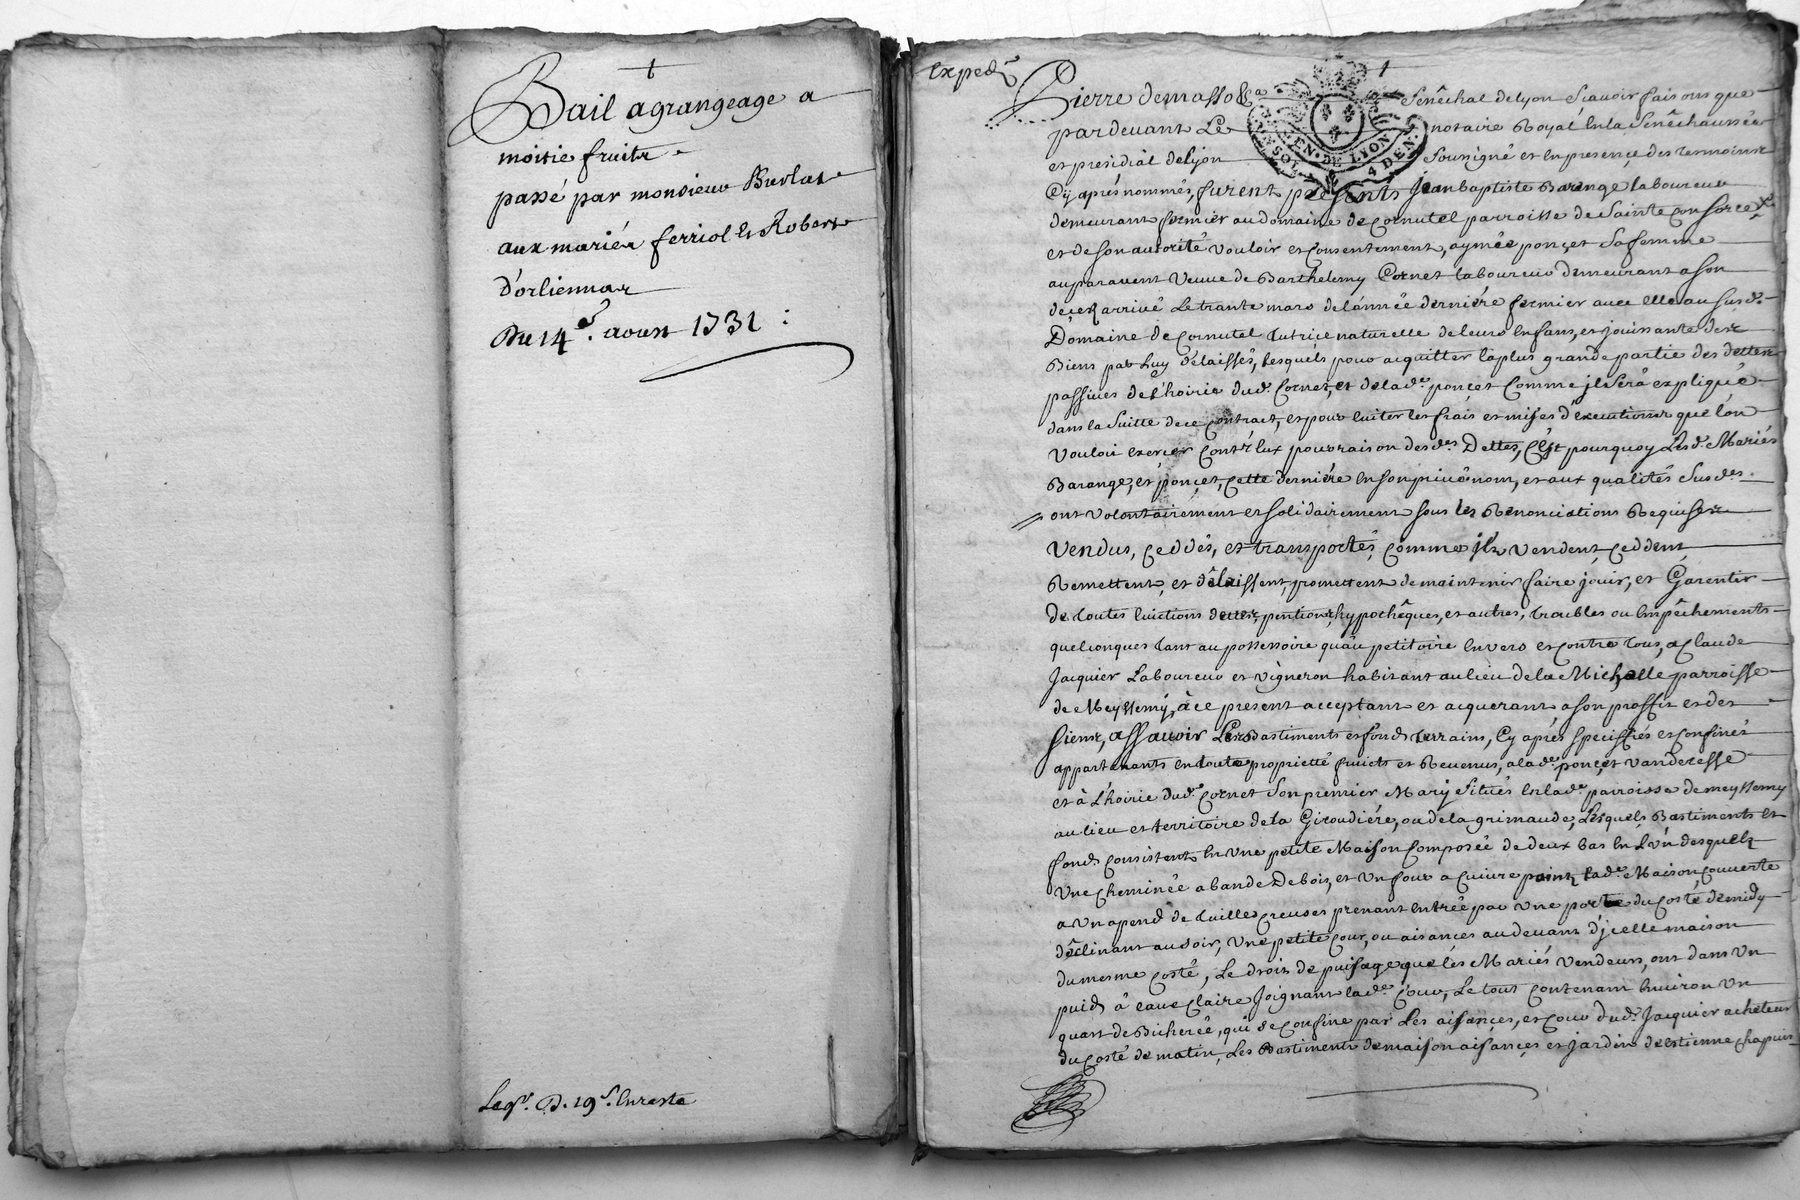 Bail agrangeage a
moitie fruits
passé par monsieur Burlat
aux mariés ferriol et Robert
d'orlienas
Du 14e. aoust 1731 :
D. 19s. En reste
Exped
Pierre demasso &a Senêchal de lyon Scavoir faisons que
pardevant Le notaire Royal En la Sénêchaussée
et presidial de lyon Sousigné et En presence des tesmoins
GEN. DE LYON
4 DEN.
Cy après nommés, furent presents Jean baptiste Barange laboureur
demeurant fermier au domaine de Cornutel parroisse de Sainte Consorce
et de son autorité vouloir et Consentement, aymée ponçet Sa femme
auparavent veuve de Barthelemy Cornet laboureur demeurant a son
deçex arrivé Le trante mars de l'année derniére fermier avec elle au susd.
Domaine de Cornutel tutrice naturelle de leurs Enfans, et jouissante des
Biens par Luy délaissés, Lesquels pour acquitter la plus grande partie des dettes
passives de l'hoirie dud. Cornet, et de lad. ponçet Comme jl Sera expliqué
dans la Suitte de ce Contract, et pour Eviter les frais et mises d'executions que l'on
Vouloit exercer Contr'Eux pour raison desd. Dettes, C'est pourquoy Lesd. Mariés
Barange, et ponçet, Cette derniére En son privé nom, et aux qualités Susd.
ont volontairement et solidairement sous les Renonciations Requises
Vendus, Ceddés, et transportés, Comme jls vendent, Ceddent
Remettent, et délaissent, promettent de maintenir faire jouir, et Garentir
de toutes Evictions dettes, pentions, hypochêques, et autres, troubles ou Empêchements
quelconques tant au possessoire qu'au petitoire Envers et Contre tous, a Claude
Jacquier Laboureur et vigneron habitant au lieu de la Michalle parroisse
de Meyssemy, à ce present acceptant et acquerant a son proffit et des
Siens, assavoir Les Bastiments et fonds terrains, Cy après Speciffiés et Confinés
appartenants en toute proprietté fruicts et Revenus, a lad. ponçet vanderesse
et à L'hoirie dud. Cornet Son premier Mary Situés En lad. parroisse de meyssemy
au lieu et territoire de la Giroudiére, ou de la grimaude; Lesquels Bastiments et
fonds Consistent En une petite Maison Composée de deux bas En L'un desquels
Une Cheminée a bande De bois, et un four a Cuire pain, lad. Maison, Couverte
a un apend de tuilles Creuses prenant Entrée par une porte du costé de midy
déclinant au soir, Une petite Cour, ou aisances au devant d'jcelle maison
du mesme costé, Le droit de puisage que lés Mariés vendeurs, ont dans un
puids à eaue Claire Joignant lad. Cour, Le tout Contenant Environ Un
quart de Bicherée, qui Se Confine par Les aisançes, et Cour dud. Jacquier acheteur
du Costé de matin, Les Bastiments de maison aisançes et jardin de Estienne Chapuis